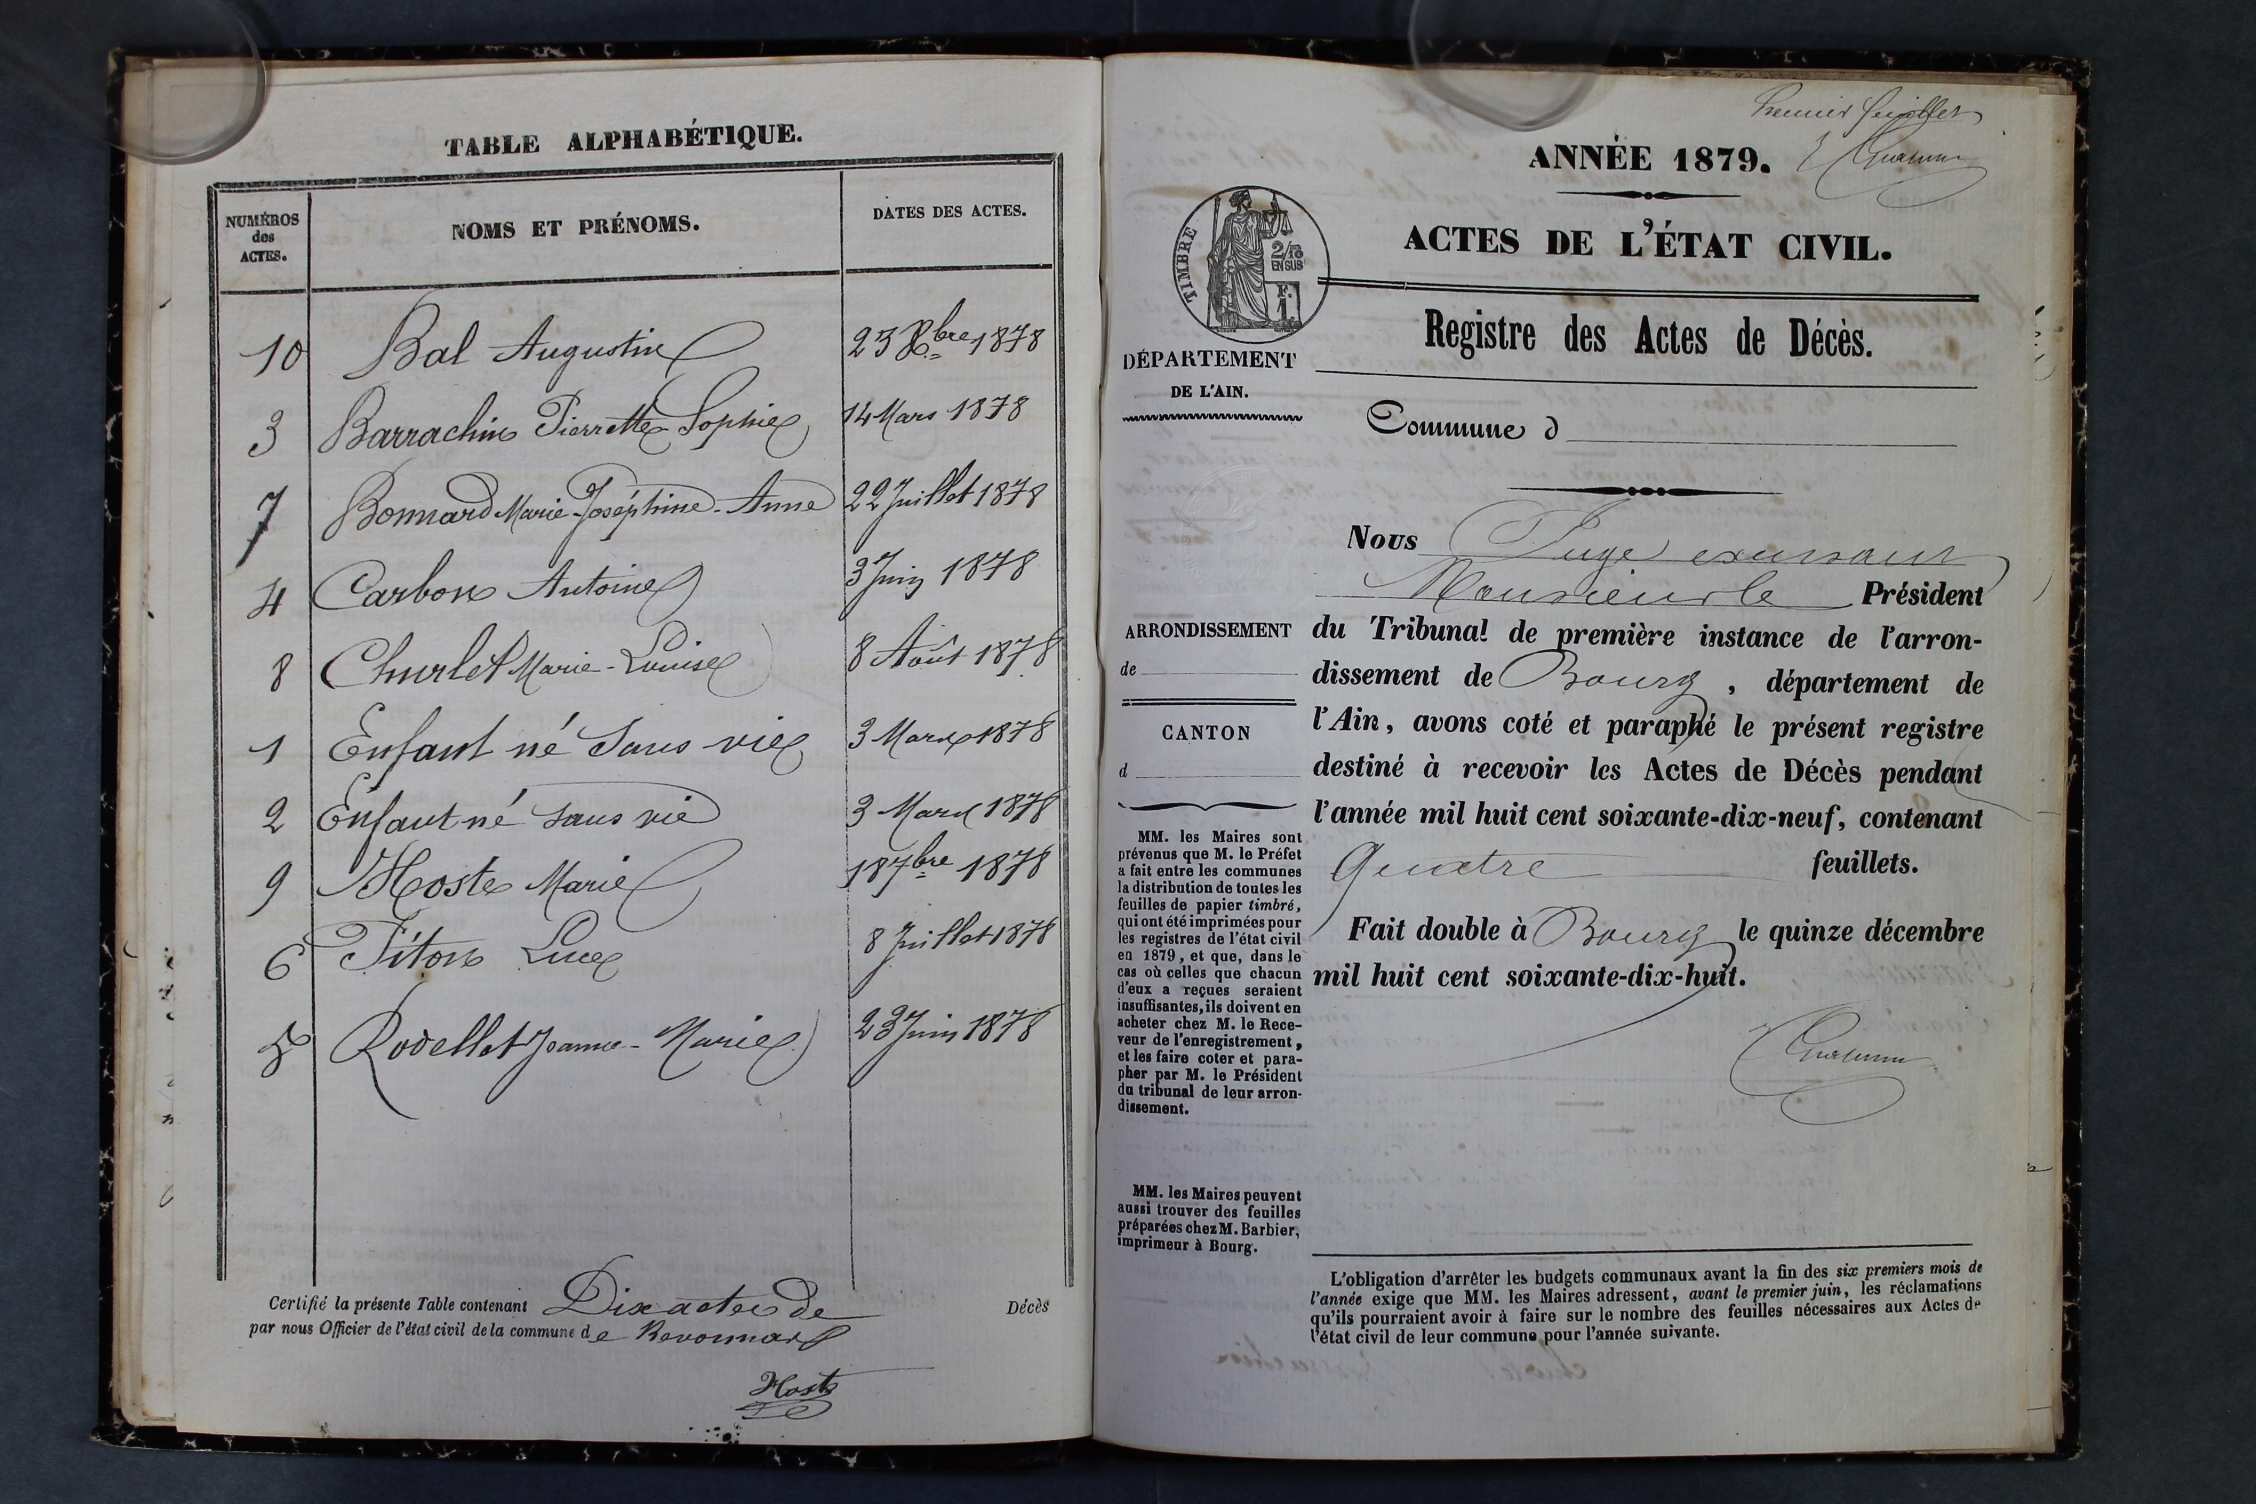 TABLE ALPHABÉTIQUE.
NUMÉROS des ACTES.
NOMS ET PRÉNOMS.
DATES DES ACTES.
10 Bal Augustin 23 Xbre 1878
3 Barrachin Pierrette Sophie 14 Mars 1878
7 Bonnard Marie-Joséphine-Anne 22 Juillet 1878
4 Carbon Antoine 3 Juin 1878
8 Churlet Marie-Louise 8 Août 1878
1 Enfant né Sans vie 3 Mars 1878
2 Enfant né sans vie 3 Mars 1878
9 Hoste Marie 18 7bre 1878
6 Piton Luce 8 Juillet 1878
5 Rodellet Jeanne-Marie 23 Juin 1878
Certifié la présente Table contenant Dix actes de Décès
par nous Officier de l'état civil de la commune de Revonnas
Hoste
Premier feuillet
ANNÉE 1879.
ACTES DE L'ÉTAT CIVIL.
TIMBRE
2/10
EN SUS
F.
1
Registre des Actes de Décès.
DÉPARTEMENT
DE L'AIN.
Commune d
ARRONDISSEMENT
de
CANTON
d
MM. les Maires sont
prévenus que M. le Préfet
a fait entre les communes
la distribution de toutes les
feuilles de papier timbré,
qui ont été imprimées pour
les registres de l'état civil
en 1879, et que, dans le
cas où celles que chacun
d'eux a reçues seraient
insuffisantes, ils doivent en
acheter chez M. le Rece-
veur de l'enregistrement,
et les faire coter et para-
pher par M. le Président
du tribunal de leur arron-
dissement.
MM. les Maires peuvent
aussi trouver des feuilles
préparées chez M. Barbier,
imprimeur à Bourg.
Nous Juge exerçant
Monsieur le Président
du Tribunal de première instance de l'arron-
dissement de Bourg, département de
l'Ain, avons coté et paraphé le présent registre
destiné à recevoir les Actes de Décès pendant
l'année mil huit cent soixante-dix-neuf, contenant
Quatre feuillets.
Fait double à Bourg le quinze décembre
mil huit cent soixante-dix-huit.
L'obligation d'arrêter les budgets communaux avant la fin des six premiers mois de
l'année exige que MM. les Maires adressent, avant le premier juin, les réclamations
qu'ils pourraient avoir à faire sur le nombre des feuilles nécessaires aux Actes de
l'état civil de leur commune pour l'année suivante.